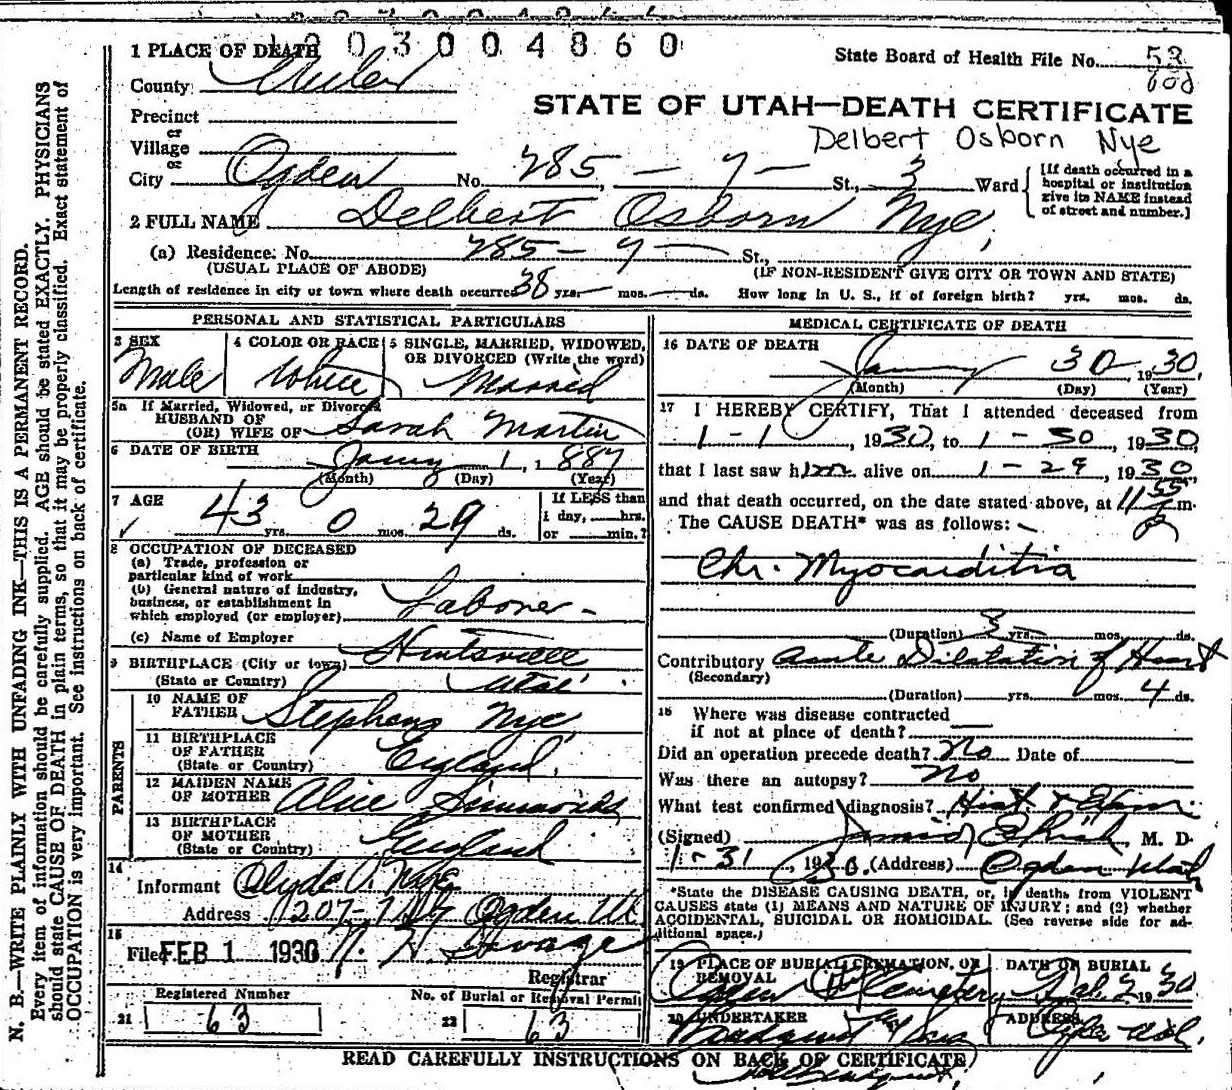 1 PLACE OF DEATH 3 0 0 4 8 6 0
State Board of Health File No. 53
600
County Weber
STATE OF UTAH—DEATH CERTIFICATE
Precinct
or
Village
Delbert Osborn Nye
or
City Ogden No. 285 — 7 — St., 3 Ward
[If death occurred in a hospital or institution give its NAME instead of street and number.]
2 FULL NAME Delbert Osborn Nye,
(a) Residence: No. 285 — 7 — St.,
(USUAL PLACE OF ABODE) (IF NON-RESIDENT GIVE CITY OR TOWN AND STATE)
Length of residence in city or town where death occurred 38 yrs. — mos. — ds. How long in U. S., if of foreign birth? yrs. mos. ds.
PERSONAL AND STATISTICAL PARTICULARS
3 SEX Male
4 COLOR OR RACE White
5 SINGLE, MARRIED, WIDOWED, OR DIVORCED (Write the word) Married
5a If Married, Widowed, or Divorced
HUSBAND OF
(OR) WIFE OF Sarah Martin
6 DATE OF BIRTH Jany 1, 1887
(Month) (Day) (Year)
7 AGE 43 yrs. 0 mos. 29 ds.
If LESS than
1 day, hrs.
or min.?
8 OCCUPATION OF DECEASED
(a) Trade, profession or
particular kind of work
(b) General nature of industry,
business, or establishment in
which employed (or employer) Laborer -
(c) Name of Employer
9 BIRTHPLACE (City or town) Huntsville
(State or Country) Utah
PARENTS
10 NAME OF
FATHER Stephens Nye,
11 BIRTHPLACE
OF FATHER
(State or Country) England,
12 MAIDEN NAME
OF MOTHER Alice Simmonds
13 BIRTHPLACE
OF MOTHER
(State or Country) England
14
Informant Clyde O. Nye
Address 207-7 Ogden Ut
15
Filed FEB 1 1930 Savage
Registrar
Registered Number
21 63
No. of Burial or Removal Permit
22 63
MEDICAL CERTIFICATE OF DEATH
16 DATE OF DEATH
Jany 30 1930,
(Month) (Day) (Year)
17 I HEREBY CERTIFY, That I attended deceased from
1-1, 1930, to 1-30, 1930,
that I last saw him alive on 1-29, 1930,
and that death occurred, on the date stated above, at 11 55 P m.
The CAUSE DEATH* was as follows:
Chr. Myocarditis
(Duration) 3 yrs. mos. ds.
Contributory Acute Dilatation of Heart
(Secondary)
(Duration) yrs. mos. 4 ds.
18 Where was disease contracted
if not at place of death?
Did an operation precede death? No Date of
Was there an autopsy? No
What test confirmed diagnosis? Hist & Exam.
(Signed) M. D.
1-31, 1930. (Address) Ogden Utah
*State the DISEASE CAUSING DEATH, or, in deaths from VIOLENT
CAUSES state (1) MEANS AND NATURE OF INJURY; and (2) whether
ACCIDENTAL, SUICIDAL OR HOMICIDAL. (See reverse side for ad-
ditional space.)
19 PLACE OF BURIAL, CREMATION, OR
REMOVAL
Ogden City Cemetery
DATE OF BURIAL
Feb. 2 1930
20 UNDERTAKER
ADDRESS
Ogden Utah.
READ CAREFULLY INSTRUCTIONS ON BACK OF CERTIFICATE
N. B.—WRITE PLAINLY WITH UNFADING INK—THIS IS A PERMANENT RECORD.
Every item of information should be carefully supplied. AGE should be stated EXACTLY. PHYSICIANS
should state CAUSE OF DEATH in plain terms, so that it may be properly classified. Exact statement of
OCCUPATION is very important. See instructions on back of certificate.